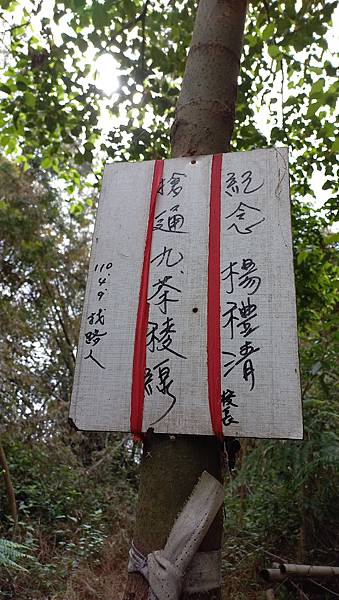 紀念 楊禮清校長
搶通九茶稜線
110.4.9 找路人